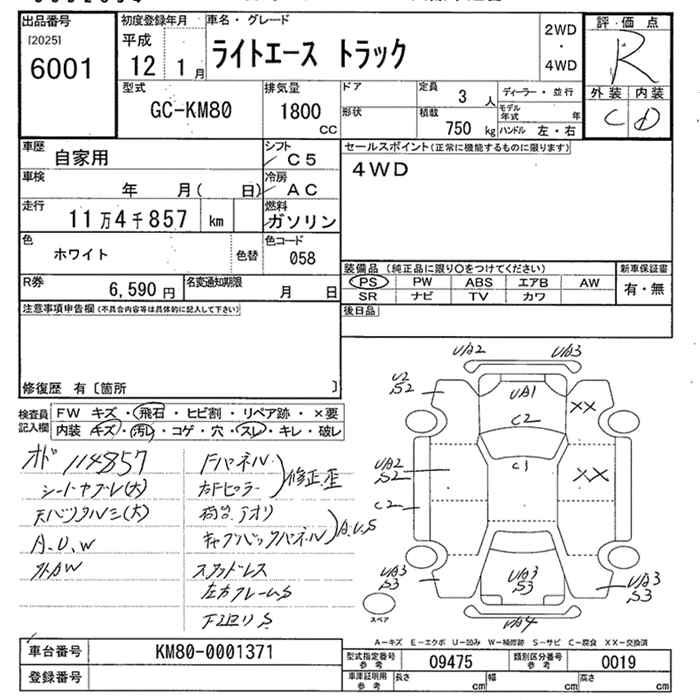 出品番号
[2025]
6001
初度登録年月
平成
12 1月
車名・グレード
ライトエース トラック
2WD
・
4WD
評・価 点
R
外装 内装
C D
型式
GC-KM80
排気量
1800
cc
ドア
形状
定員
3 人
積載
750 kg
ディーラー・並行
モデル年式 年
ハンドル 左・右
車歴
自家用
シフト
C5
車検
年 月( 日)
冷房
AC
走行
11万4千857 km
燃料
ガソリン
色
ホワイト
色替
色コード
058
R券
6,590円
名変通知期限
月 日
セールスポイント(正常に機能するものに限ります)
4WD
装備品 (純正品に限り○をつけてください)
PS PW ABS エアB AW
SR ナビ TV カワ
新車保証書
有・無
後日品
注意事項申告欄(不具合内容等は具体的に記入して下さい)
修復歴 有〔箇所 〕
検査員
記入欄
FW キズ・飛石・ヒビ割・リペア跡・×要
内装 キズ・汚レ・コゲ・穴・スレ・キレ・破レ
オド 114857
シートヤブレ(大)
天バリタルミ(大)
A.U.W
外AW
Fパネル
右Fピラー
修正歪
荷台、アオリ
キャブバックパネル
A.U.S
スタッドレス
左右フレームS
下廻りS
UA2 UA3
U2
S2
UA1
C2
XX
C1
UA2
S2
XX
C2
UA3
S3
UA3
S3
UA3
S3
UA4
スペア
A−キズ E−エクボ U−凹み W−補修跡 S−サビ C−腐食 XX−交換済
車台番号
KM80-0001371
登録番号
型式指定番号
参考
09475
類別区分番号
参考
0019
車庫証明用
参考
長さ cm
幅 cm
高さ cm